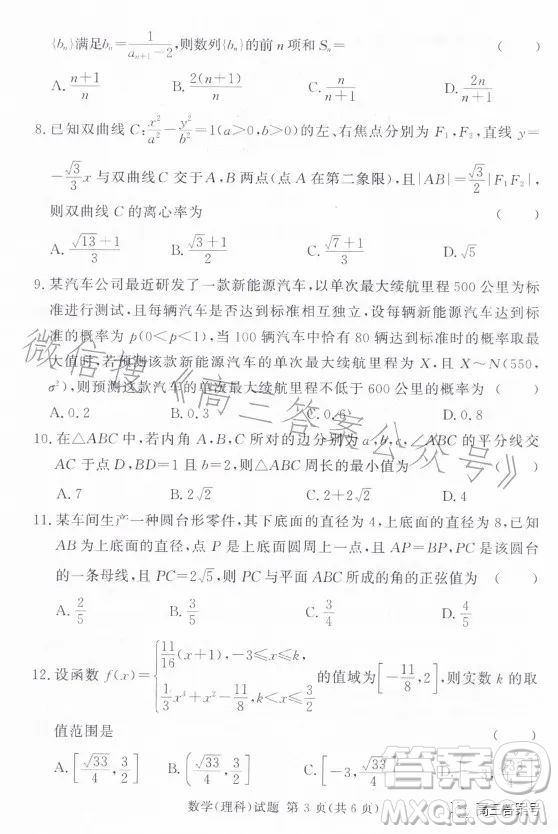 {bₙ}满足bₙ=1/(aₙ₊₁-2),则数列{bₙ}的前n项和Sₙ= (　　)
A. (n+1)/n　B. 2(n+1)/n　C. n/(n+1)　D. 2n/(n+1)
8. 已知双曲线C:x²/a²-y²/b²=1(a>0,b>0)的左、右焦点分别为F₁,F₂,直线y=
-(√3/3)x与双曲线C交于A,B两点(点A在第二象限),且|AB|=(√3/2)|F₁F₂|,
则双曲线C的离心率为 (　　)
A. (√13+1)/3　B. √13/3　C. (√7+1)/3　D. √5
9. 某汽车公司最近研发了一款新能源汽车,以单次最大续航里程500公里为标
准进行测试,且每辆汽车是否达到标准相互独立,设每辆新能源汽车达到标
准的概率为p(0<p<1),当100辆汽车中恰有80辆达到标准时的概率取最
大值时,若预测该款新能源汽车的单次最大续航里程为X,且X~N(550,
σ²),则预测这款汽车的单次最大续航里程不低于600公里的概率为 (　　)
A. 0.2　B. 0.3　C. 0.6　D. 0.8
10. 在△ABC中,若内角A,B,C所对的边分别为a,b,c,∠ABC的平分线交
AC于点D,BD=1且b=2,则△ABC周长的最小值为 (　　)
A. 7　B. 2√2　C. 2+2√5　D. 4
11. 某车间生产一种圆台形零件,其下底面的直径为4,上底面的直径为8,已知
AB为上底面的直径,点P是上底面圆周上一点,且AP=BP,PC是该圆台
的一条母线,且PC=2√5,则PC与平面ABC所成的角的正弦值为 (　　)
A. 2/5　B. 3/5　C. 3/4　D. 4/5
12. 设函数f(x)={(11/16)(x+1),-3≤x≤k, (1/3)x⁴+x²-3/2,k<x≤3/2 的值域为[-11/8,2],则实数k的取
值范围是 (　　)
A. [√33/4,3/2]　B. [√33/4,3/2)　C. [-3,√33/4]
数学(理科)试题 第3页(共6页)
微信搜《高三答案公众号》
答案圈
MXQE.COM
高三答案号